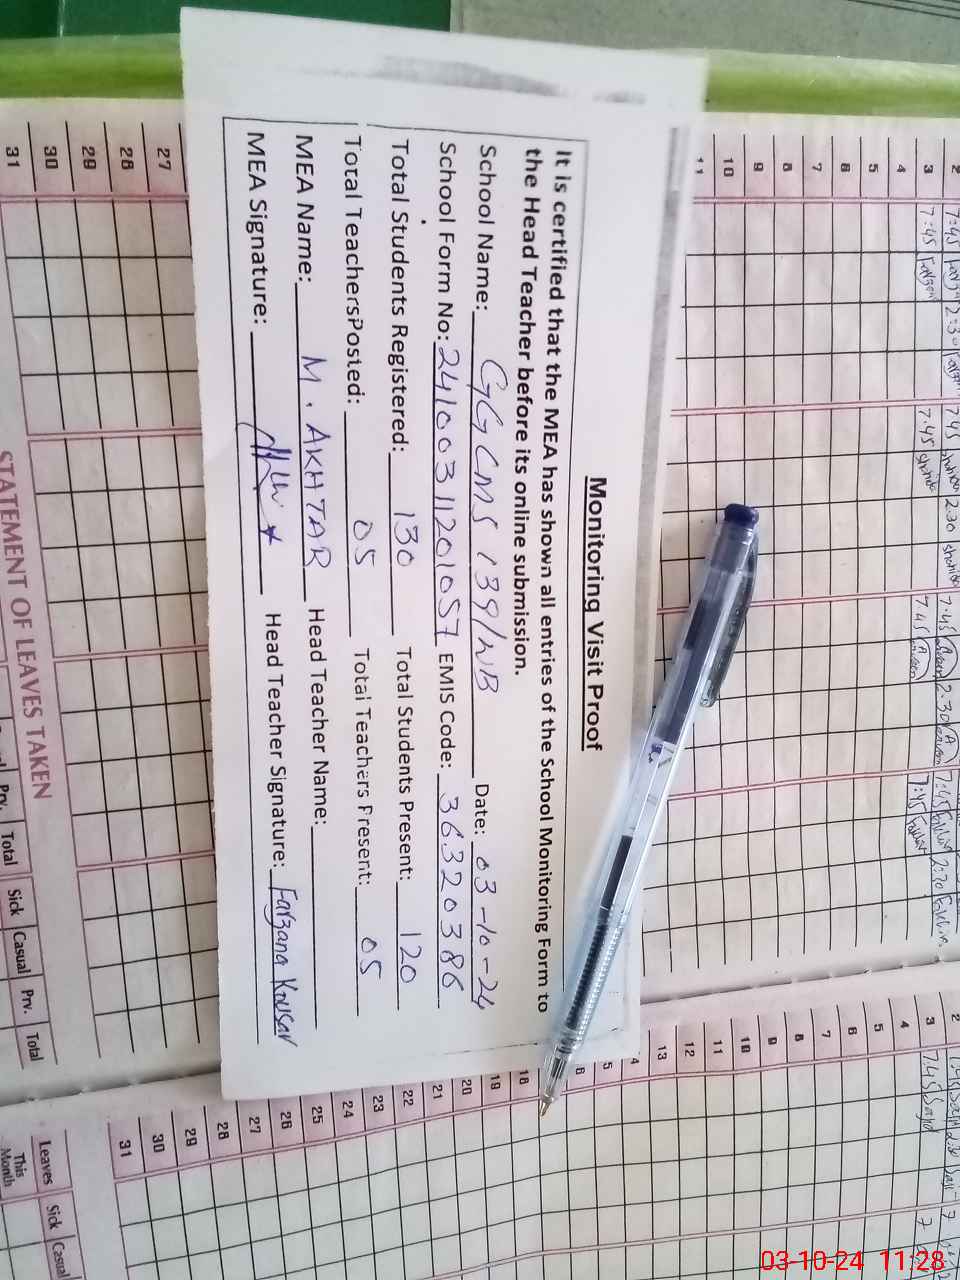 Monitoring Visit Proof
It is certified that the MEA has shown all entries of the School Monitoring Form to
the Head Teacher before its online submission.
School Name: GGCMS 139/WB Date: 03-10-24
School Form No: 24100311201057 EMIS Code: 36320386
Total Students Registered: 130 Total Students Present: 120
Total Teachers Posted: 05 Total Teachers Present: 05
MEA Name: M. AKHTAR Head Teacher Name:
MEA Signature: Head Teacher Signature: Farzana Kousar
2 7:45 2:30 7:45 2.30 7:45 2.30 7:45
3 7:45 7:45 7:45 7:45
4
5
6
7
8
9
10
11
27
28
29
30
31
STATEMENT OF LEAVES TAKEN
Prv. Total Sick Casual Prv. Total
2
3 7:45
4
5
6
7
8
9
10
11
12
13
18
19
20
21
22
23
24
25
26
27
28
29
30
31
Leaves Sick Casual
This
Month
03-10-24 11:28